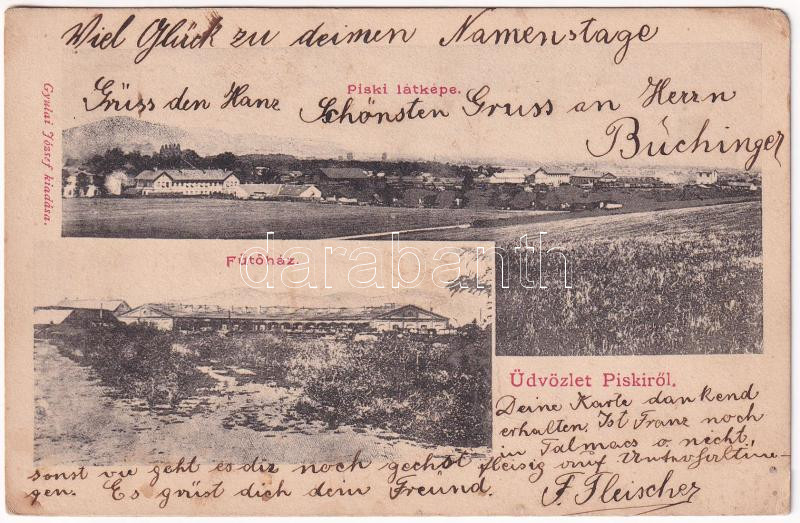 Viel Glück zu deimen Namenstage
Grüss den Hanz
Piski látképe.
Schönsten Gruss an Herrn
Büchinger
Gyulai József kiadása.
Fűtőház.
darabanth
Üdvözlet Piskiről.
Deine Karte dankend
erhalten. Ist Franz noch
in Talmacs o. necht,
sonst vie geht es dir noch gechst fleisig auf
gen. Es grüst dich dein Freund. F. Fleischer